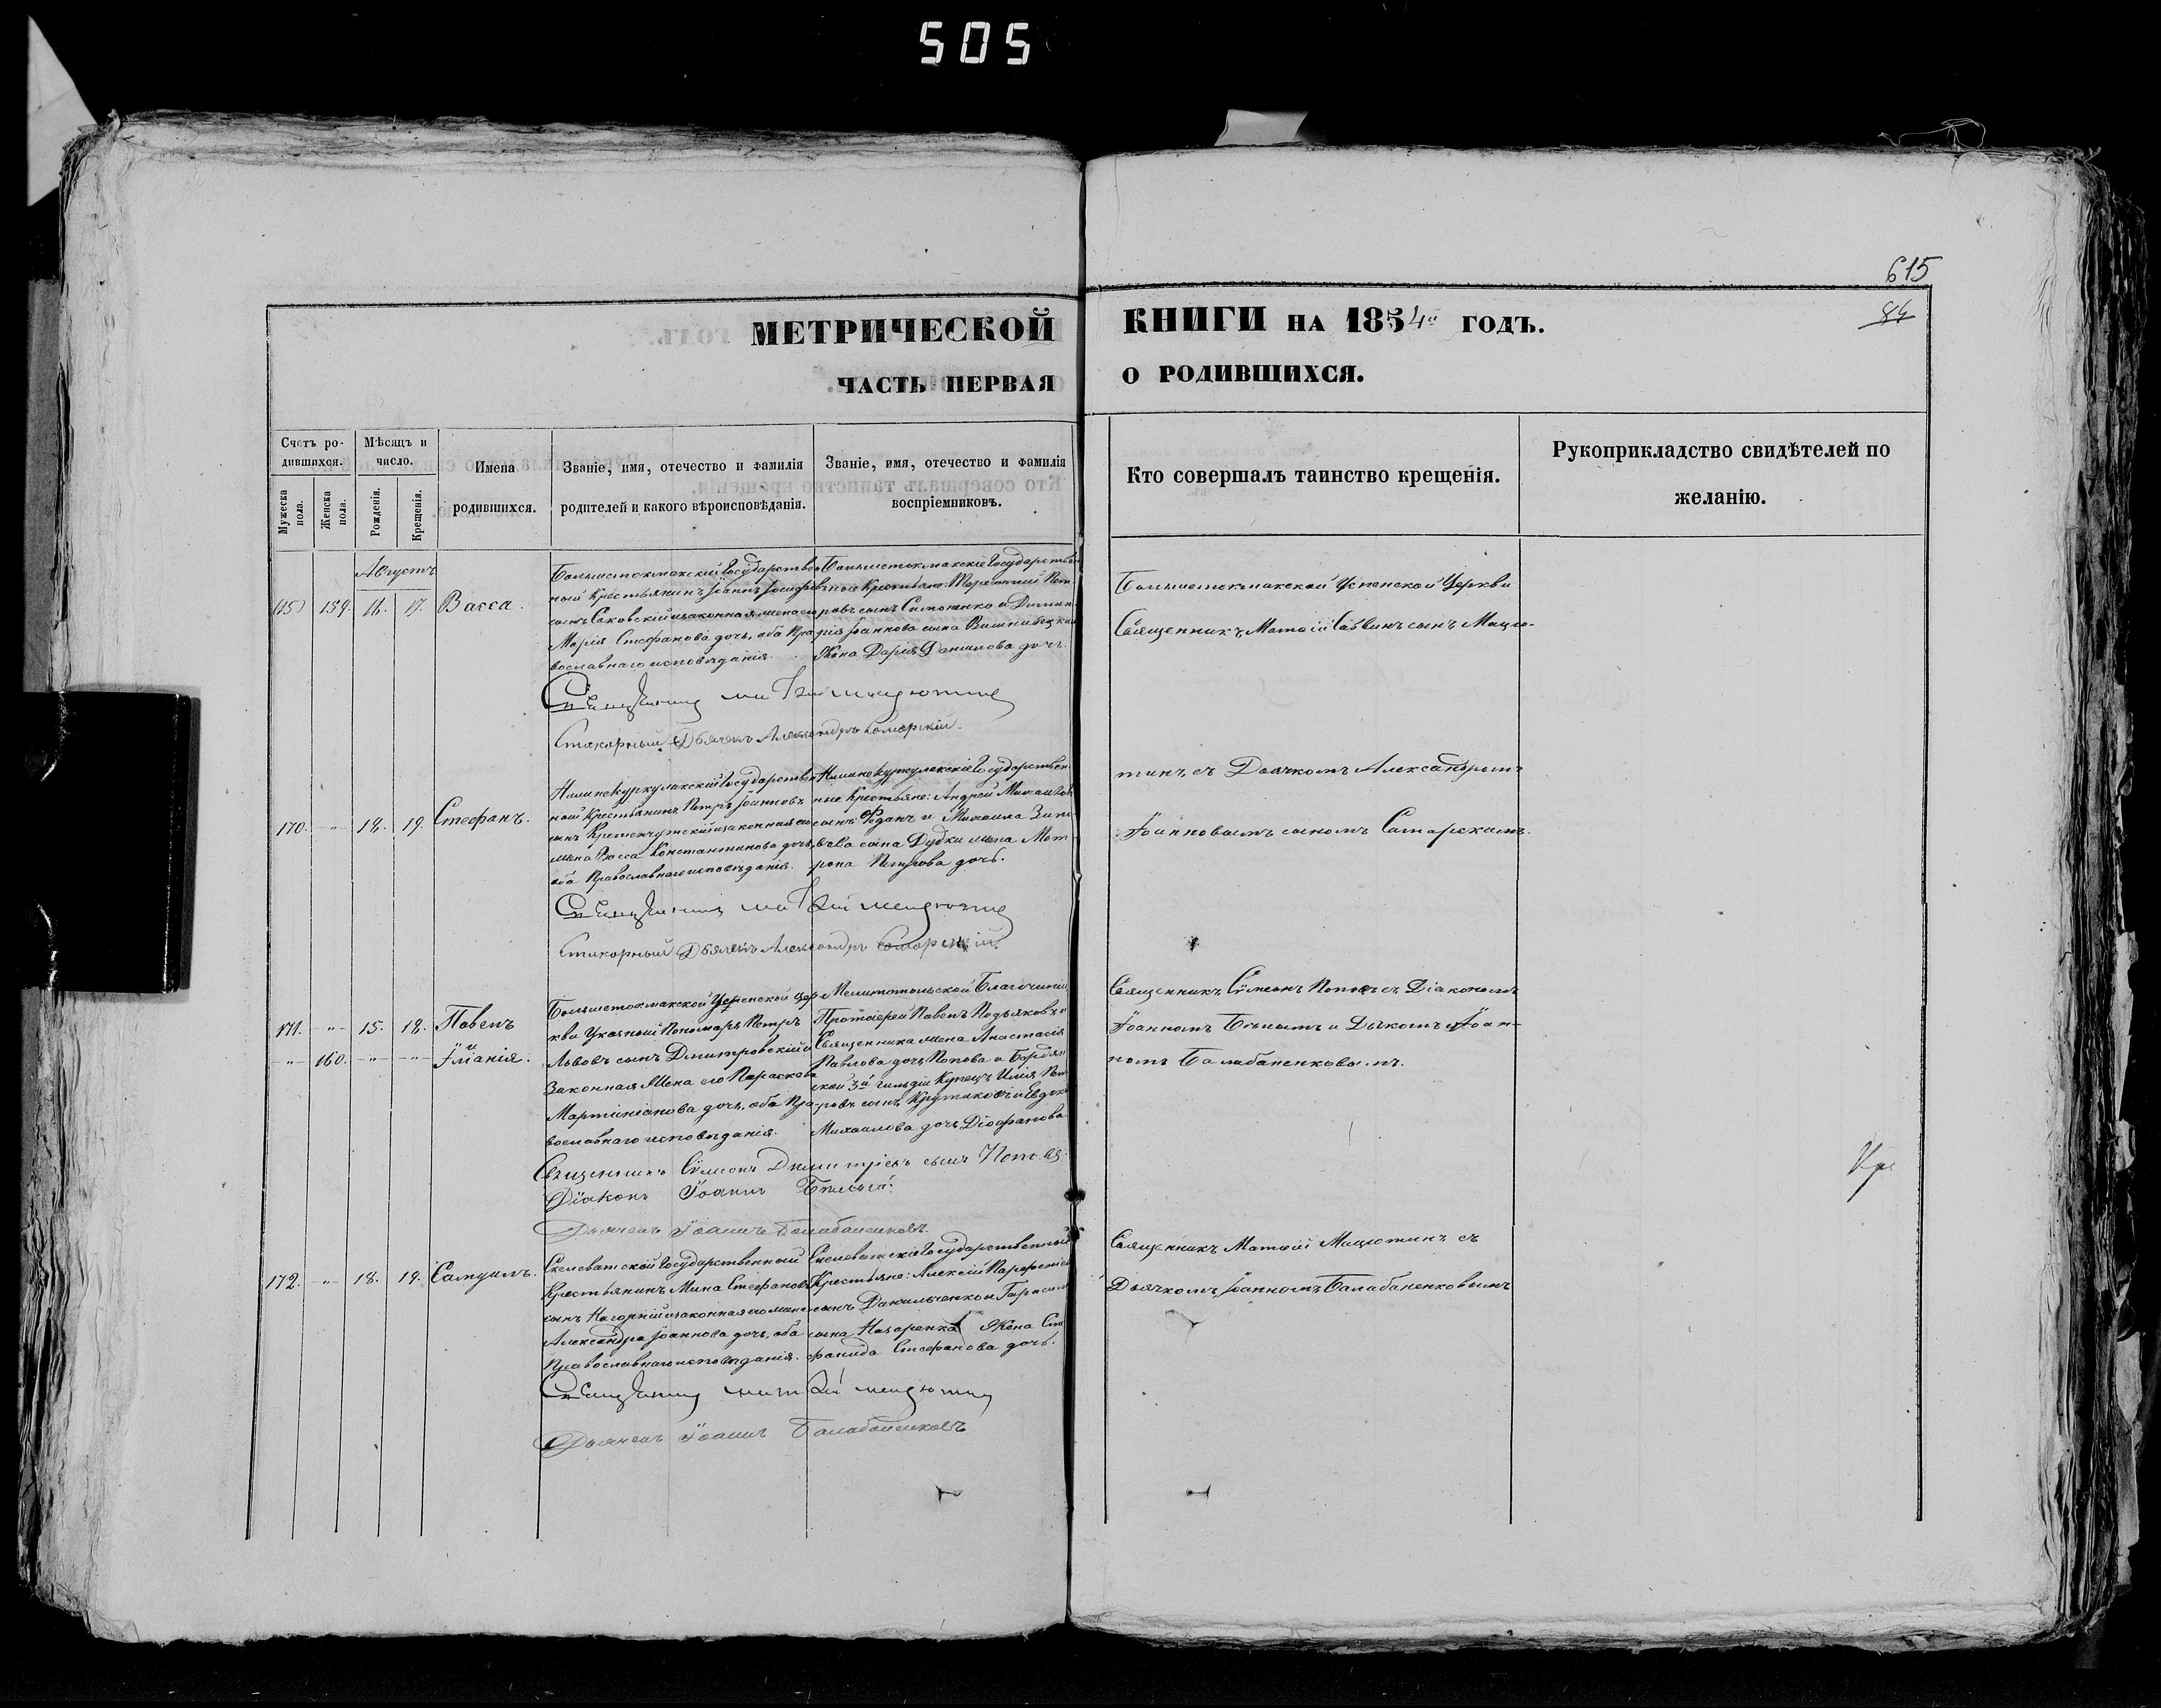 505
615
84
МЕТРИЧЕСКОЙ КНИГИ НА 1854й ГОДЪ.
ЧАСТЬ ПЕРВАЯ О РОДИВШИХСЯ.
Счетъ ро-
дившихся.
Мужеска пола.
Женска пола.
Мѣсяцъ и
число.
Рожденія.
Крещенія.
Имена
родившихся.
Званіе, имя, отечество и фамилія
родителей и какого вѣроисповѣданія.
Званіе, имя, отечество и фамилія
воспріемниковъ.
Кто совершалъ таинство крещенія.
Рукоприкладство свидѣтелей по
желанію.
Августъ
159. 16. 17. Васса.
Большетокмакскій Государствен
ный Крестьянинъ Іоаннъ Іосифовъ
сынъ Саковскій и законная жена его
Марія Стефанова дочь, оба Пра
вославнаго исповѣданія.
Большетокмакскіе Государствен
ные Крестьяне: Терентій Пет
ровъ сынъ Симоненко и Димит
рія Іоаннова сына Вишнивецкаго
Жена Дарія Данилова дочь.
Большетокмакской Успенской Церкви
Священникъ Матѳій Саввинъ сынъ Мацю-
Священникъ Матѳій Мацютинъ
Стихарный Дьячекъ Александръ
170. -"- 18. 19. Стефанъ.
Нижнекуркулакскій Государствен
ный Крестьянинъ Петръ Іоанновъ
сынъ Кременчутскій и законная его
жена Васса Константинова дочь,
оба Православнаго исповѣданія.
Нижнекуркулакскіе Государствен
ные Крестьяне: Андрей Михайловъ
сынъ и Михаила Зино
вьева сына Дудки жена Мот
рона Петрова дочь.
тинъ, съ Дьячкомъ Александромъ
Іоанновымъ сыномъ
Священникъ Матѳій Мацютинъ
Стихарный Дьячекъ Александръ
171. -"- 15. 18. Павелъ
и
-"- 160. -"- -"- Іуліанія.
Большетокмакской Успенской Цер
кви Указный Пономарь Петръ
Львовъ сынъ Дмитровскій и
Законная Жена его Параскева
Мартиніанова дочь, оба Пра-
вославнаго исповѣданія.
Мелитопольской Благочинія
Протоіерей Павелъ Подъяковъ, и
Священника жена Анастасія
Павлова дочь Попова и Бердян
ской 3й гильдіи Купецъ Илія Пет
ровъ сынъ Крутиковъ и Евдокія
Михаилова дочь Діофанова
Священникъ Сѵмеонъ Поповъ съ Діакономъ
Іоанномъ Бѣлымъ и Дьячкомъ Іоан-
номъ Балабаненковымъ.
Священникъ Сѵмеонъ Димитріевъ сынъ Поповъ
Діаконъ Іоаннъ Бѣлый.
Дьячекъ Іоаннъ Балабаненковъ.
172. -"- 18. 19. Самуилъ.
Скелеватской Государственный
Крестьянинъ Мина Стефановъ
сынъ Нагорній и законная его жена
Александра Іоаннова дочь, оба
Православнаго исповѣданія.
Скелеватскіе Государственные
Крестьяне: Алексій Парфеніевъ
сынъ Данильченко и Герасима
сына Назаренка Жена Сте
фанида Стефанова дочь.
Священникъ Матѳій Мацютинъ съ
Дьячкомъ Іоанномъ Балабаненковымъ
Священникъ Матѳій Мацютинъ
Дьячекъ Іоаннъ Балабаненковъ